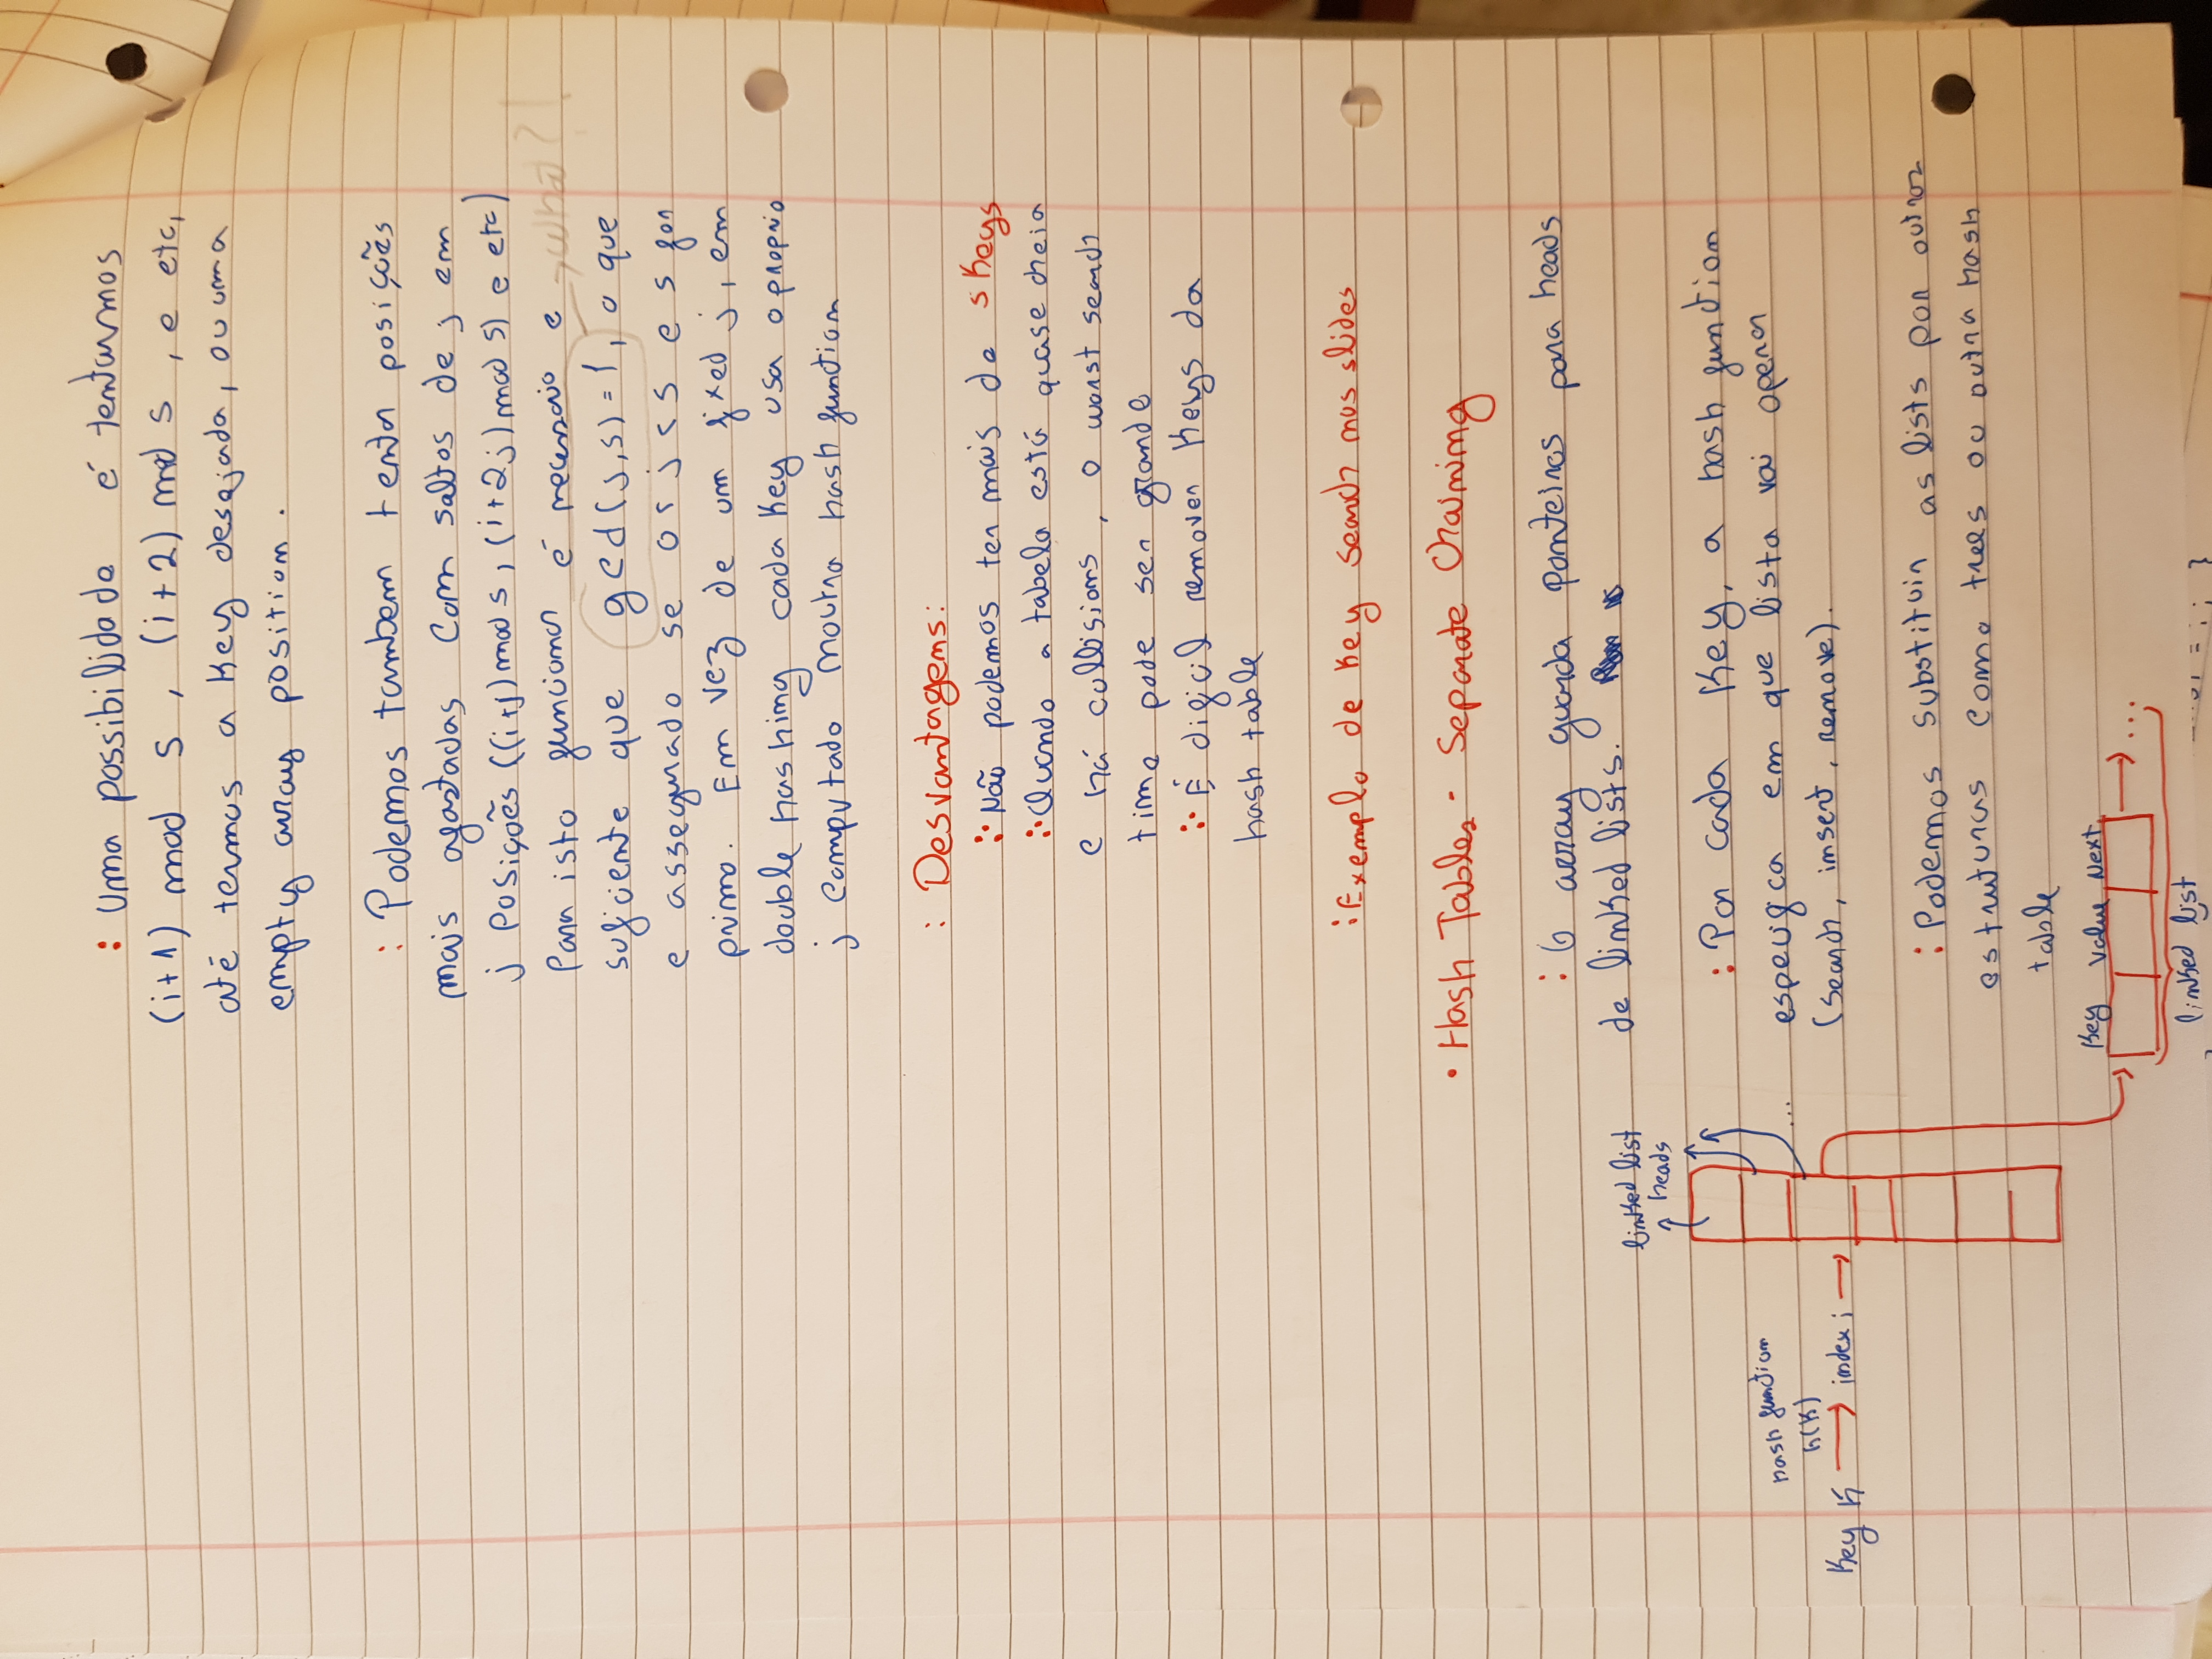 : Uma possibilidade é tentarmos
(i+1) mod s , (i+2) mod s , e etc,
até termos a Key desejada, ou uma
empty array position.
: Podemos tambem tentar posições
mais afastadas com saltos de j em
j posições ((i+j) mod s, (i+2j) mod s) e etc)
Para isto funcionar é necessario e
what?!
suficiente que gcd(j,s)=1, o que
e assegurado se
j < s e s for
primo. Em vez de um fixed j, em
double hashing cada Key usa o proprio
j computado noutra hash function
: Desvantagens:
:· Não podemos ter mais de s Keys
:· Quando a tabela está quase cheia
e há collisions, o worst search
time pode ser grande
:· É dificil remover Keys da
hash table
: Exemplo de Key search nos slides
• Hash Tables - Separate Chaining
: O array guarda ponteiros para heads
de linked lists.
linked list
heads
: Por cada Key, a hash function
especifica em que lista vai operar
(search, insert, remove).
hash function
h(K)
...
Key K → index i →
: Podemos substituir as lists por outras
estruturas como trees ou outra hash
table
Key Value Next
→ ...
linked list